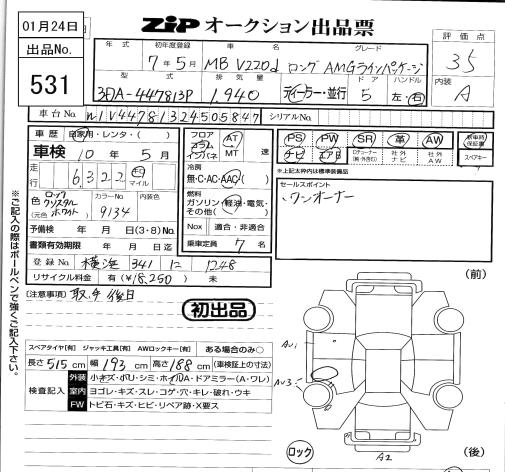 01月24日
ZiP オークション出品票
評価点
3.5
出品No.
531
年式
初年度登録
7年5月
車名
MB V220d ロング AMGラインパッケージ
グレード
型式
3DA-447813P
排気量
1,940
ディーラー・並行
ドア
5
ハンドル
左・右
内装
A
車台No.
W1V44781324505847
シリアルNo.
車歴
自家用・レンタ・( )
車検 10年 5月
走行 63,220 キロ マイル
色(元色) ロッククリスタルホワイト
カラーNo.
9134
内装色
予備検 年 月 日(3・8)No.
書類有効期限 年 月 日迄
登録No 横浜 341 に 1248
リサイクル料金 有(¥18,250) 未
フロア コラム インパネ
AT
MT 速
冷房
無・C・AC・AAC
燃料
ガソリン・軽油・電気・その他( )
Nox 適合・非適合
乗車定員 7 名
PS PW SR 革 AW
ナビ エアB 社外ナビ 社外AW
新車時保証書
スペアキー
※上記太枠内は標準装備品
セールスポイント
・ワンオーナー
(注意事項) 取、キ 後日
初出品
スペアタイヤ[有] ジャッキ工具[有] AWロックキー[有] ある場合のみ○
長さ 515 cm 幅 193 cm 高さ 188 cm (車検証上の寸法)
検査記入
外装 小キズ・ボリ・シミ・ホイルA・ドアミラー(A・ワレ)
室内 ヨゴレ・キズ・スレ・コゲ・穴・キレ・破れ・ウキ
FW トビ石・キズ・ヒビ・リペア跡・X要ス
(前)
AU1
AU3
A2
ロック
(後)
※ご記入の際はボールペンで強くご記入下さい。